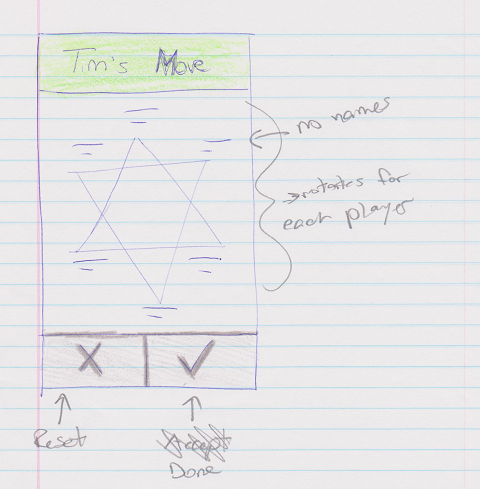 Tim's Move
no names
→ rotates for
each player
X ✓
Reset
Accept
Done